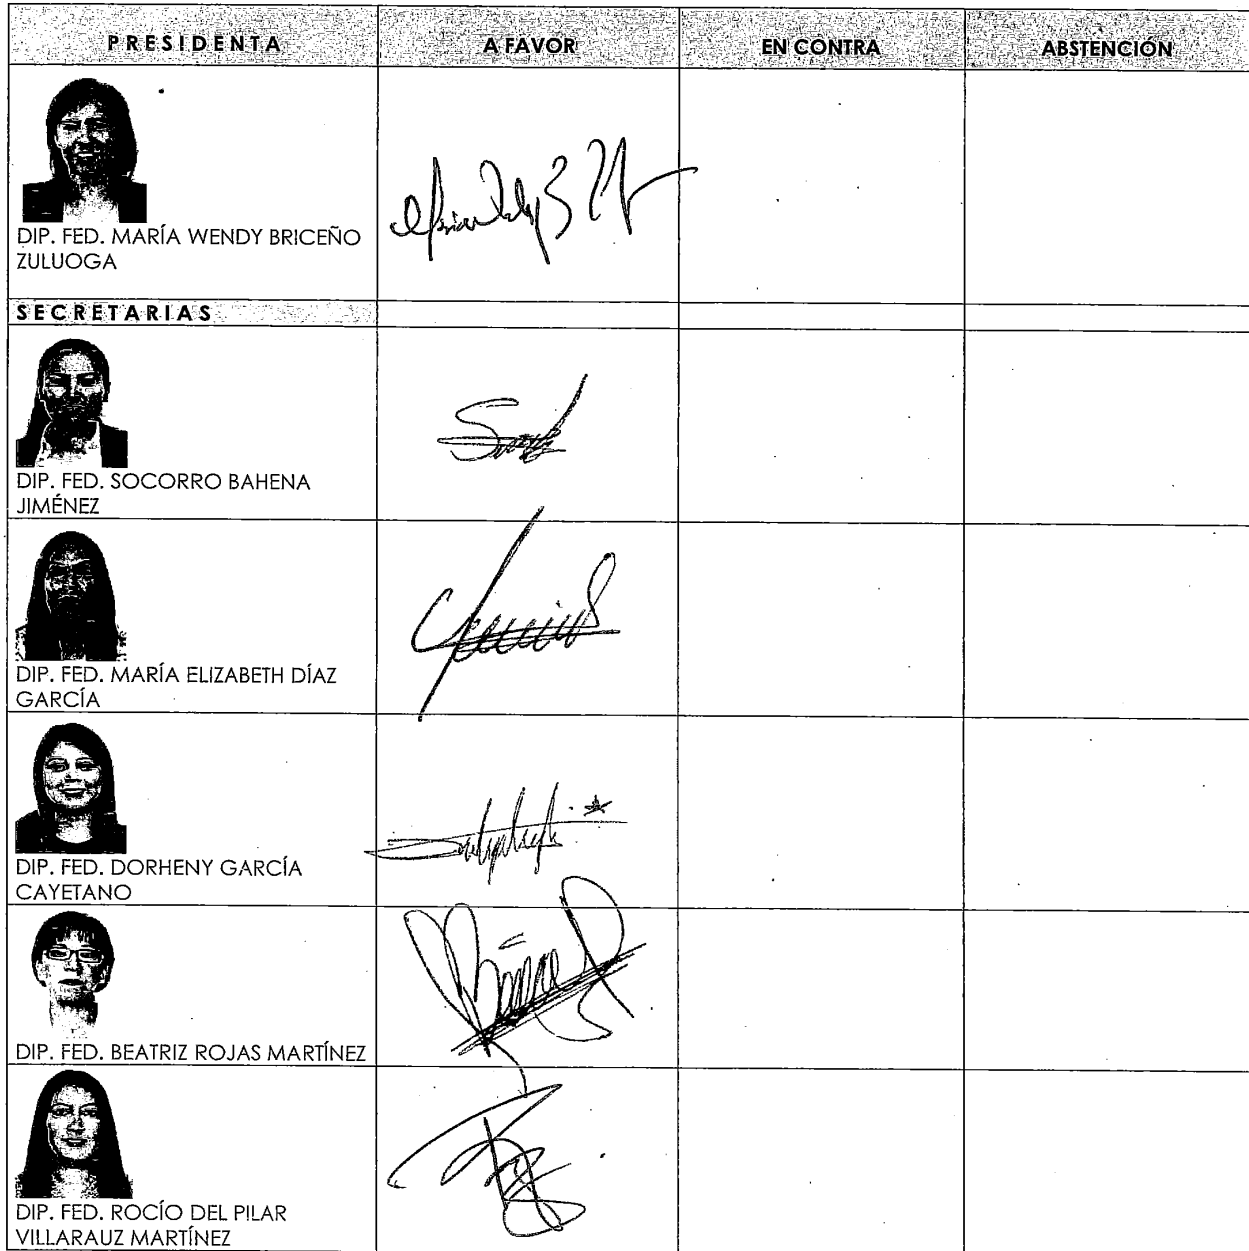 PRESIDENTA A FAVOR EN CONTRA ABSTENCIÓN
DIP. FED. MARÍA WENDY BRICEÑO
ZULUOGA
SECRETARIAS
DIP. FED. SOCORRO BAHENA
JIMÉNEZ
DIP. FED. MARÍA ELIZABETH DÍAZ
GARCÍA
DIP. FED. DORHENY GARCÍA
CAYETANO
DIP. FED. BEATRIZ ROJAS MARTÍNEZ
DIP. FED. ROCÍO DEL PILAR
VILLARAUZ MARTÍNEZ